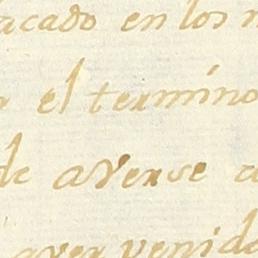 acado en los
el termino
de averse a
aver venido